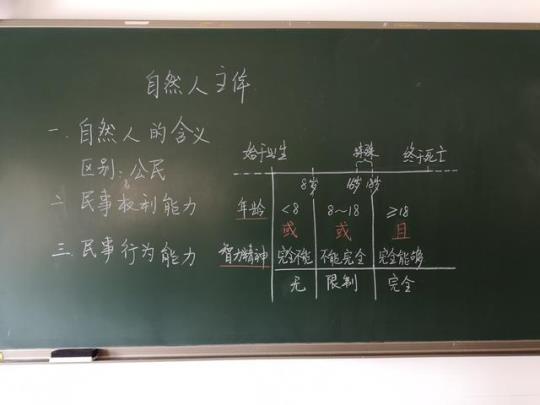 自然人主体
一.自然人的含义
区别:公民
二.民事权利能力
三.民事行为能力
始于出生 特殊 终于死亡
8岁 16岁 18岁
年龄 <8 8~18 ≥18
或 或 且
智力精神 完全不能 不能完全 完全能够
无 限制 完全